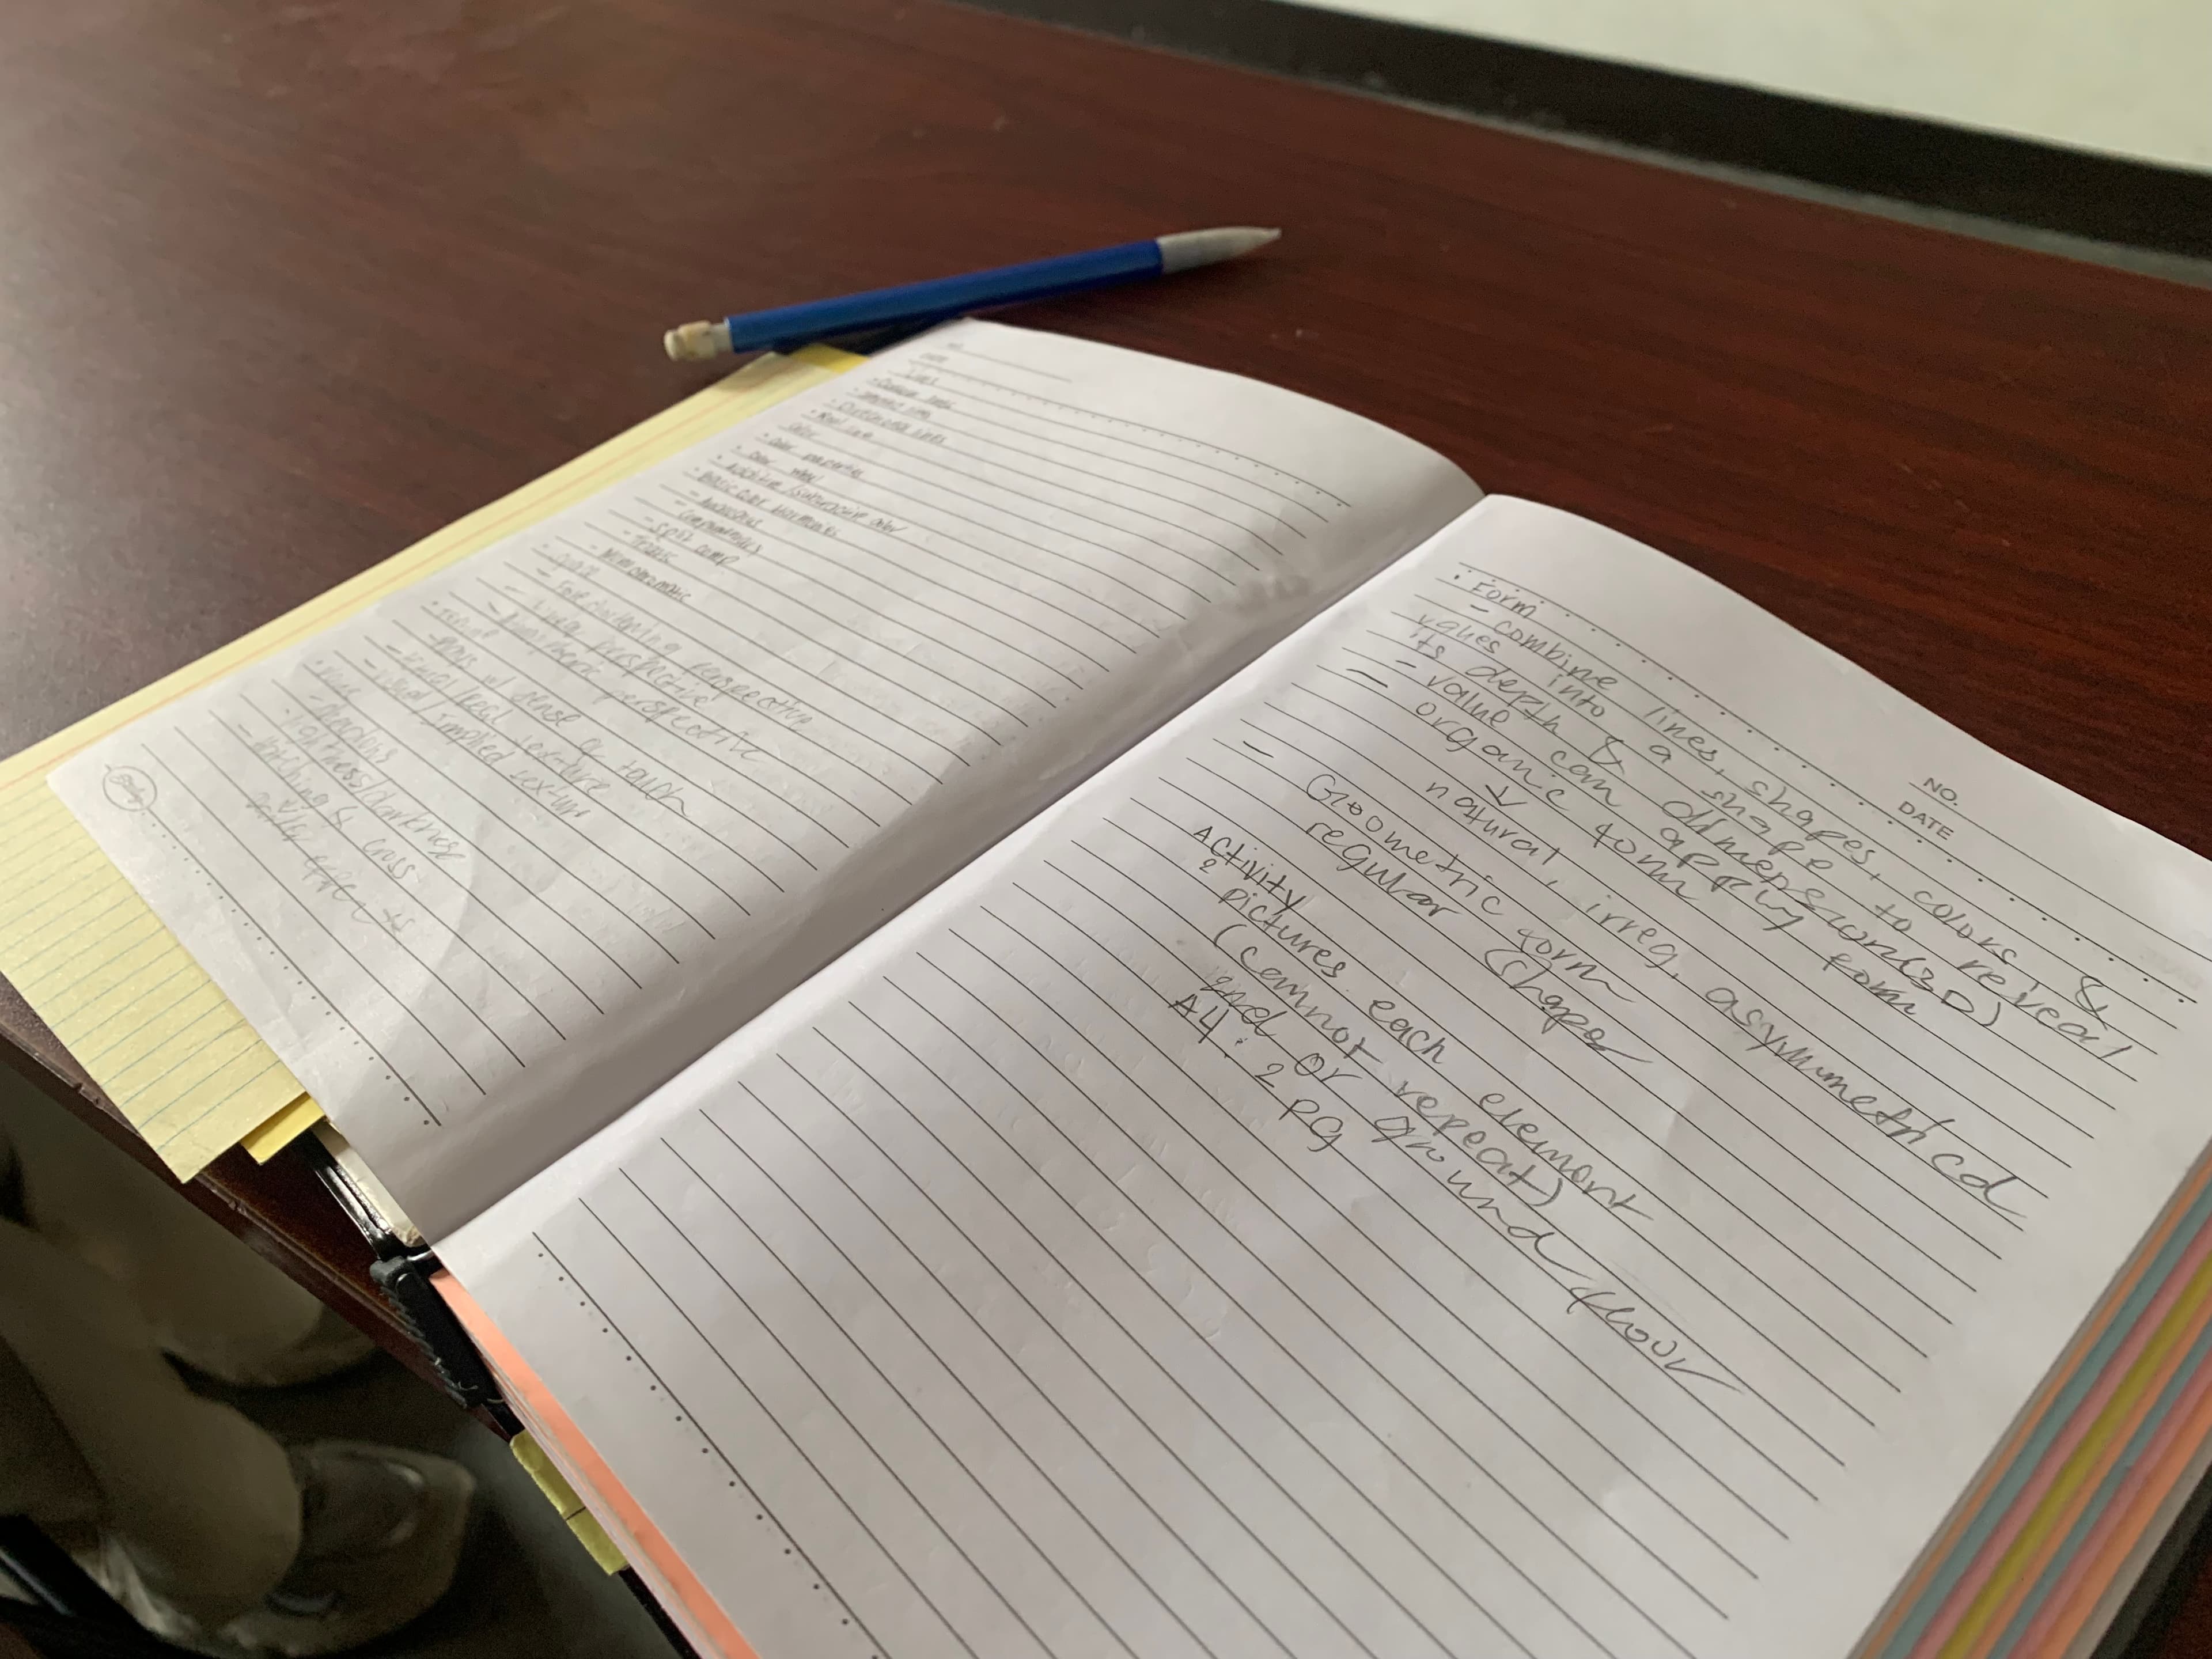 NO.
DATE
Lines
• Outline lines
• Implied lines
• Directional lines
• Real line
Color
• Color properties
• Color wheel
• Additive/subtractive color
• Basic color harmonies
- Analogous
- Complementaries
- Split comp
- Triadic
- Monochromatic
• Space
- Foreshortening perspective
- Linear perspective
- Atmospheric perspective
• Texture
- Plays w/ sense of touch
- Actual/real texture
- Visual/implied texture
• Value
- lightness/darkness
- Hatching & cross
effects
NO.
DATE
• Form
- combine lines, shapes, colors &
values into a shape to reveal
its depth & dimensions (3D)
- value can apply form
- organic form
↓
natural, irreg, asymmetrical
- Geometric form
regular shapes
Activity
2 pictures each element
(cannot repeat)
2nd or ground floor
A4: 2 pg